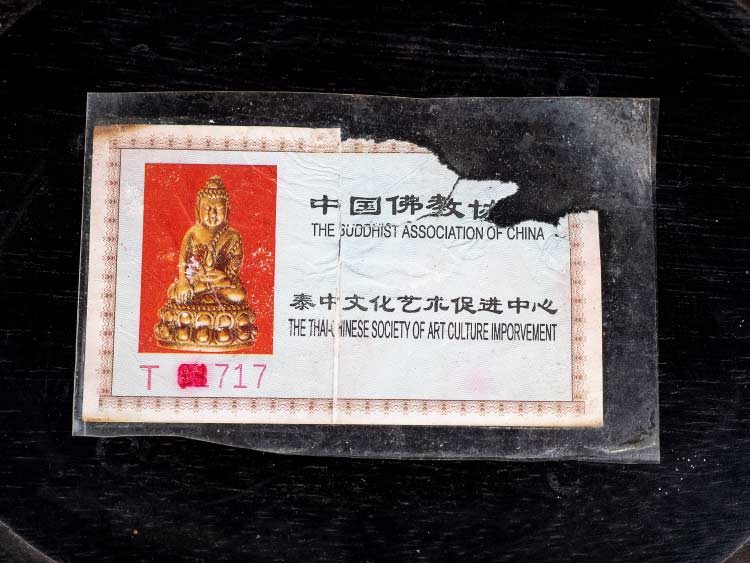 中国佛教
THE BUDDHIST ASSOCIATION OF CHINA
泰中文化艺术促进中心
THE THAI-CHINESE SOCIETY OF ART CULTURE IMPORVEMENT
T 717